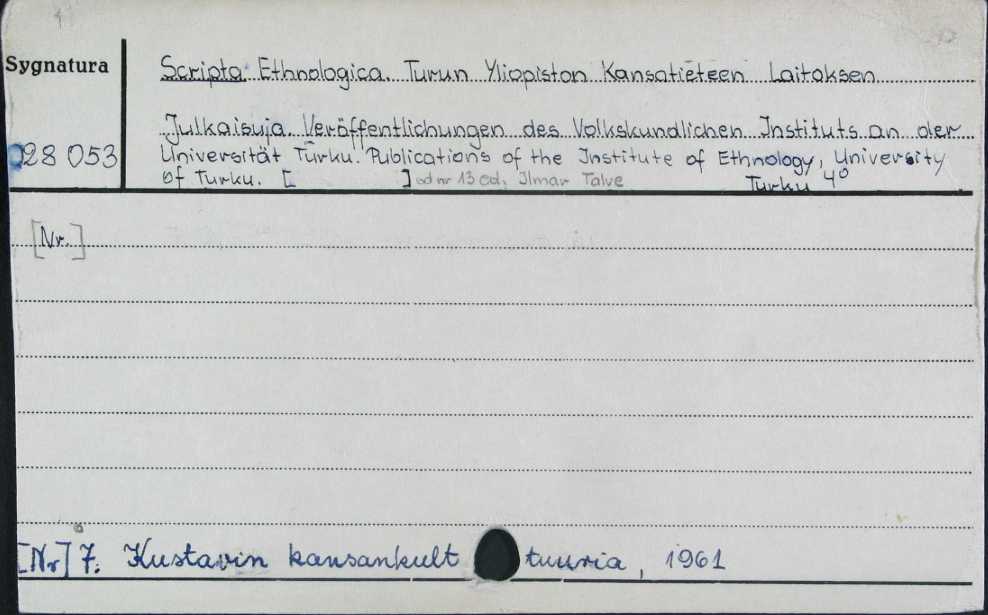 Sygnatura
Scripta Ethnologica. Turun Yliopiston Kansatieteen Laitoksen
Julkaisuja. Veröffentlichungen des Volkskundlichen Instituts an der
028 053
Universität Turku. Publications of the Institute of Ethnology, University
of Turku. [ ] od nr 13 ed. Ilmar Talve Turku 4°
[Nr.]
[Nr] 7. Kustavin kansankult tuuria, 1961